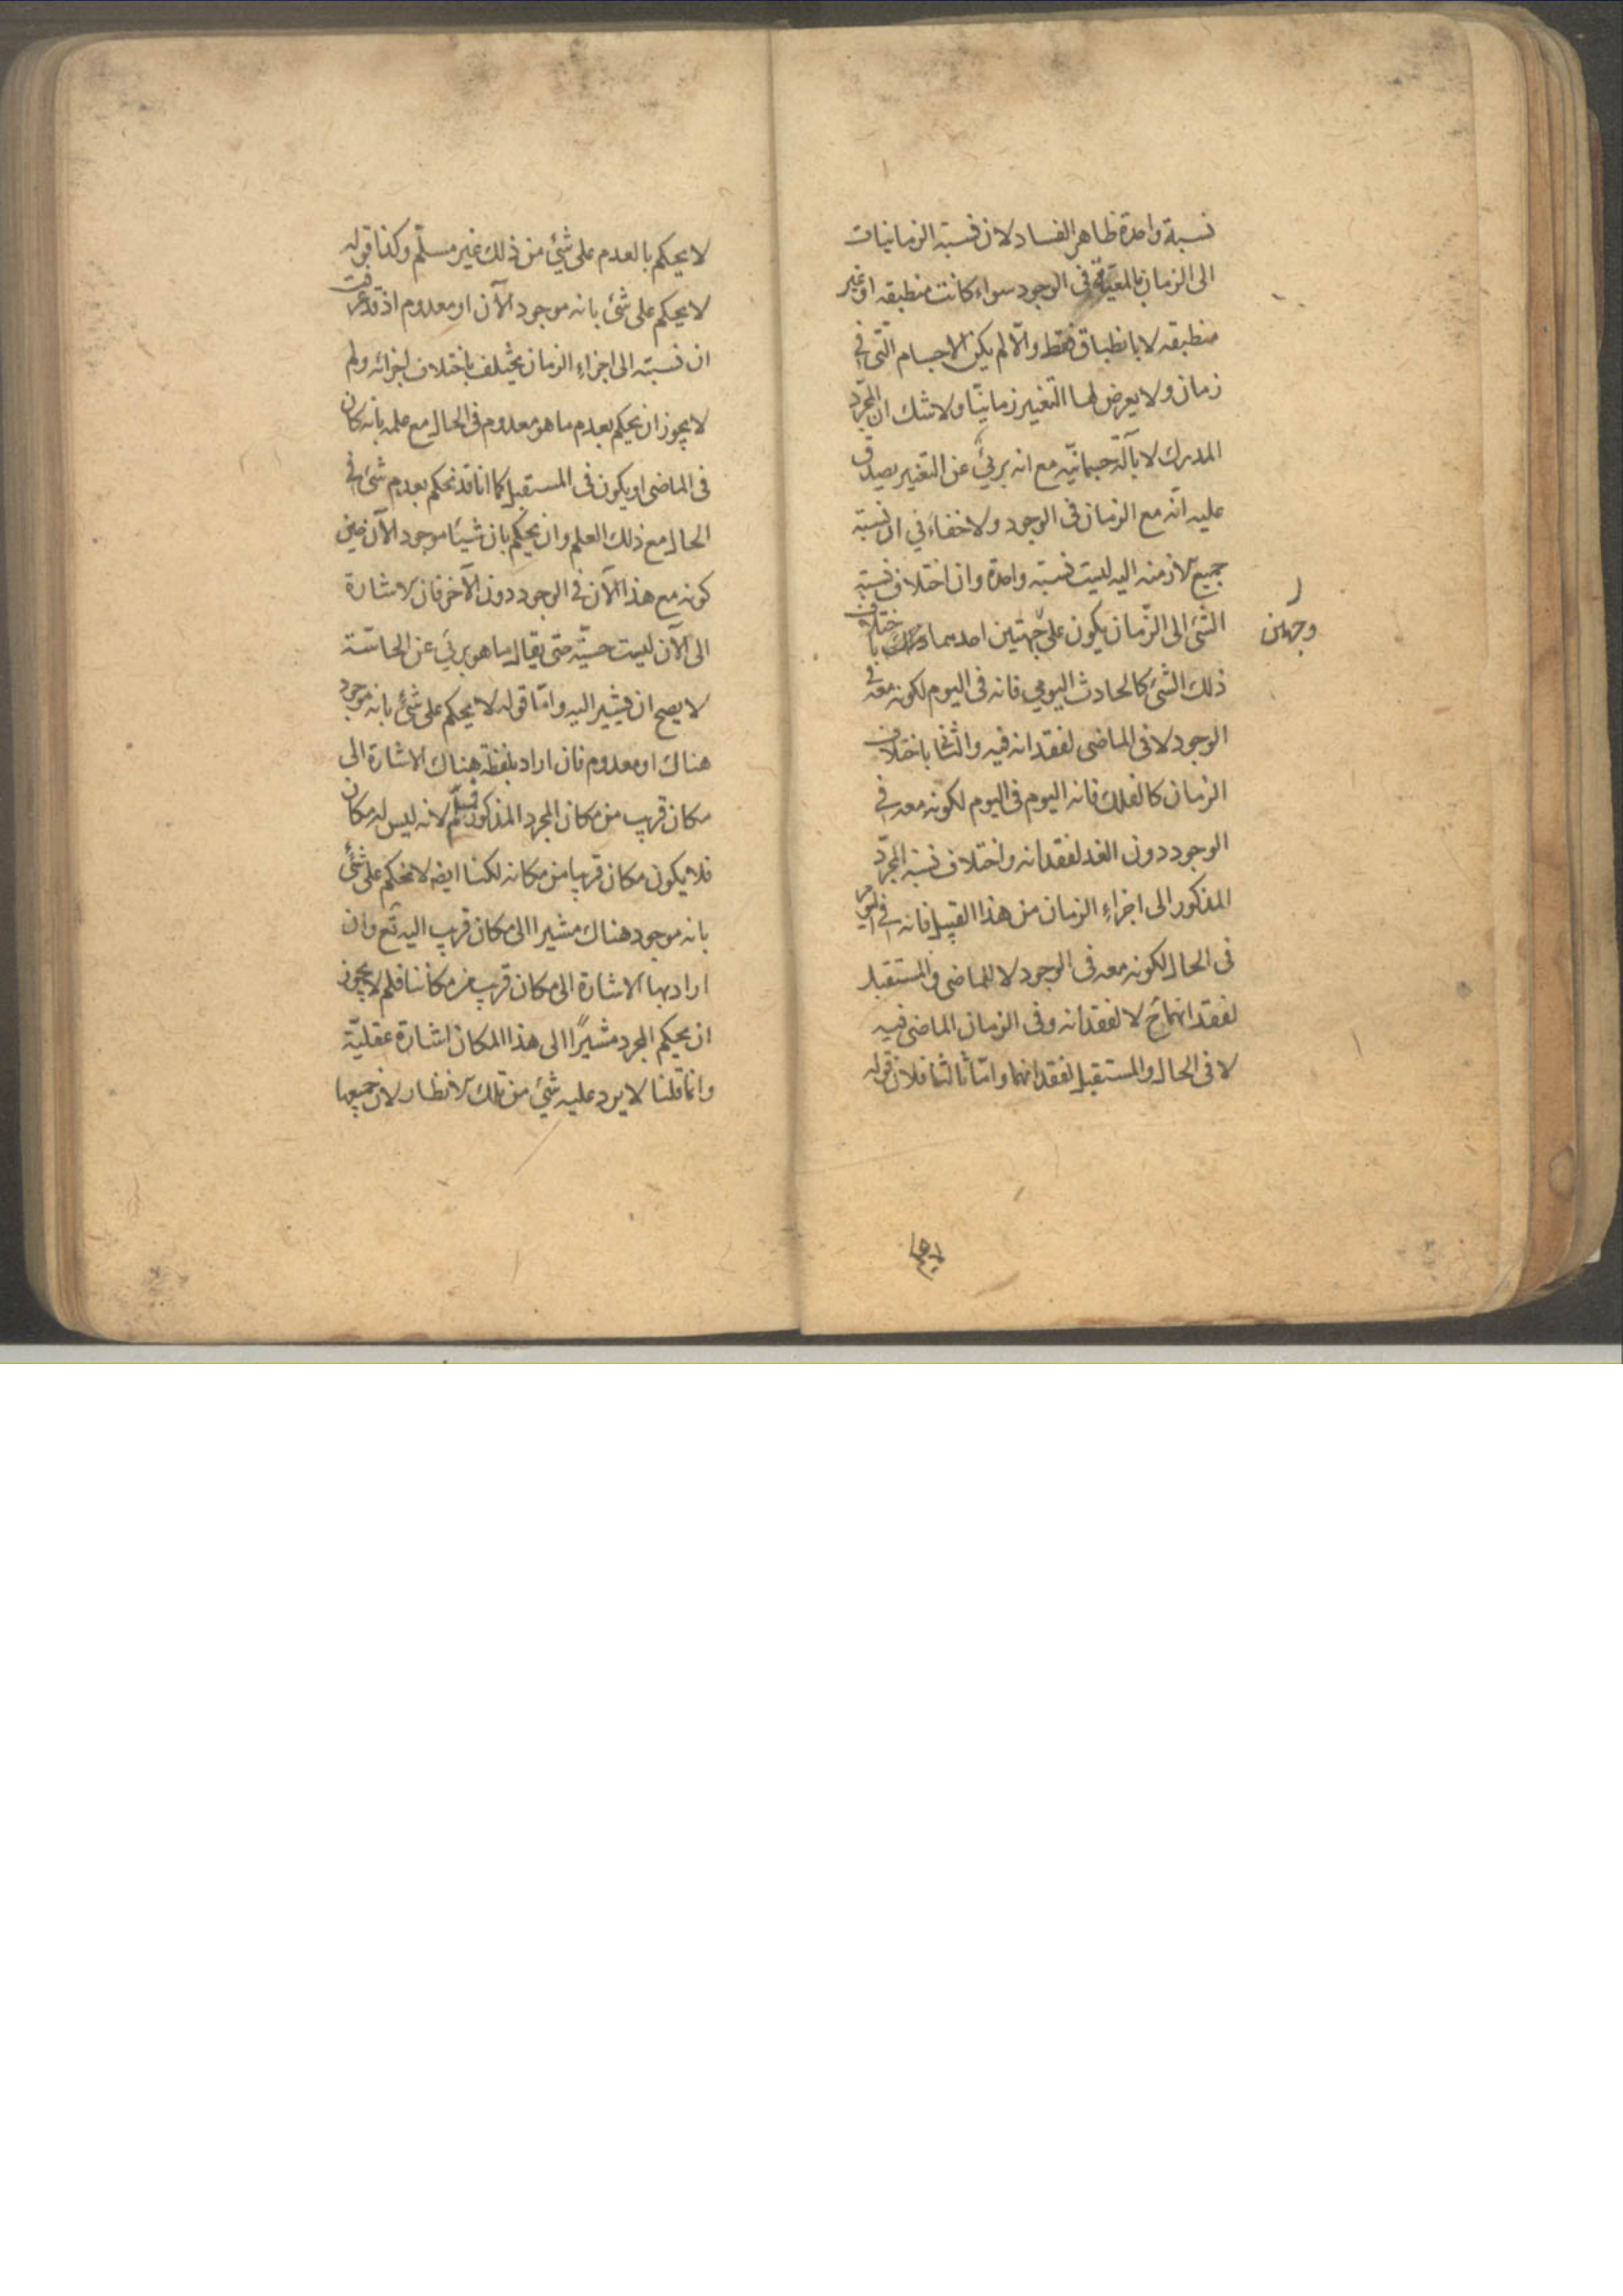 نسبة واحدة ظاهر الفساد لان نسبة الزمانيات
الى الزمان بالمعية فى الوجود سواء كانت منطبقه او غير
منطبقه لا بانطباق فقط والّا لم يكن الاجسام الّتى فى
زمان ولا يعرض لها التغيير زمانيّا ولا شك ان المجرّد
المدرك لا بآلة جسمانيّه مع انه بريئ عن التغيير يصدق
عليه انّه مع الزمان فى الوجود ولا خفاء فى ان نسبة
جميع الازمنه اليه ليست نسبته واحدة وان اختلاف نسبة
الشئ الى الزّمان يكون على جهتين احديهما باختلاف
وجهين
ذلك الشئ كالحادث اليومي فانه فى اليوم لكونه معه فى
الوجود لا فى الماضى لفقدانه فيه والثّا باختلاف
الزمان كالفلك فانه اليوم فى اليوم لكونه معه فى
الوجود دون الغد لفقدانه واختلاف نسبة المجرّد
المذكور الى اجزاء الزمان من هذا القبيل فانه فى اليوم
فى الحال لكونه معه فى الوجود لا الماضى والمستقبل
لفقدانهما ح لا لفقدانه وفى الزمان الماضى فيه
لا فى الحال والمستقبل لفقدانهما وامّا ثالثا فلان قوله
لا يحكم
لا يحكم بالعدم على شيئ من ذلك غير مسلّم وكذا قوله
لا يحكم على شئ بانه موجود الآن او معدوم اذ قد عرفت
ان نسبته الى اجزاء الزمان يختلف باختلاف اجزائه ولم
لا يجوز ان يحكم بعدم ما هو معدوم فى الحال مع علمه بانه كان
فى الماضى او يكون فى المستقبل كما انا قد نحكم بعدم شئ فى
الحال مع ذلك العلم وان يحكم بان شيئا موجود الآن حين
كونه مع هذا الآن فى الوجود دون الآخر فان الاشارة
الى الآن ليست حسيّة حتى يقال ما هو بريئ عن الحاسّة
لا يصح ان يشير اليه وامّا قوله لا يحكم على شئ بانه موجود
هناك او معدوم فان اراد بلفظة هناك الاشارة الى
مكان قريب من مكان المجرد المذكور فمسلّم لانه ليس له مكان
فلا يكون مكان قريبا من مكانه لكنا ايضه لا نحكم على شئ
بانه موجود هناك مشيرا الى مكان قريب اليه تع وان
اراد بها الاشارة الى مكان قريب من مكاننا فلم لا يجوز
ان يحكم المجرد مشيرًا الى هذا المكان اشارة عقليّة
وانما قلنا لا يرد عليه شئ من تلك الانظار لان جميعها